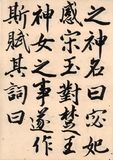 之神名曰宓妃
感宋玉對楚王
神女之事遂作
斯賦其詞曰